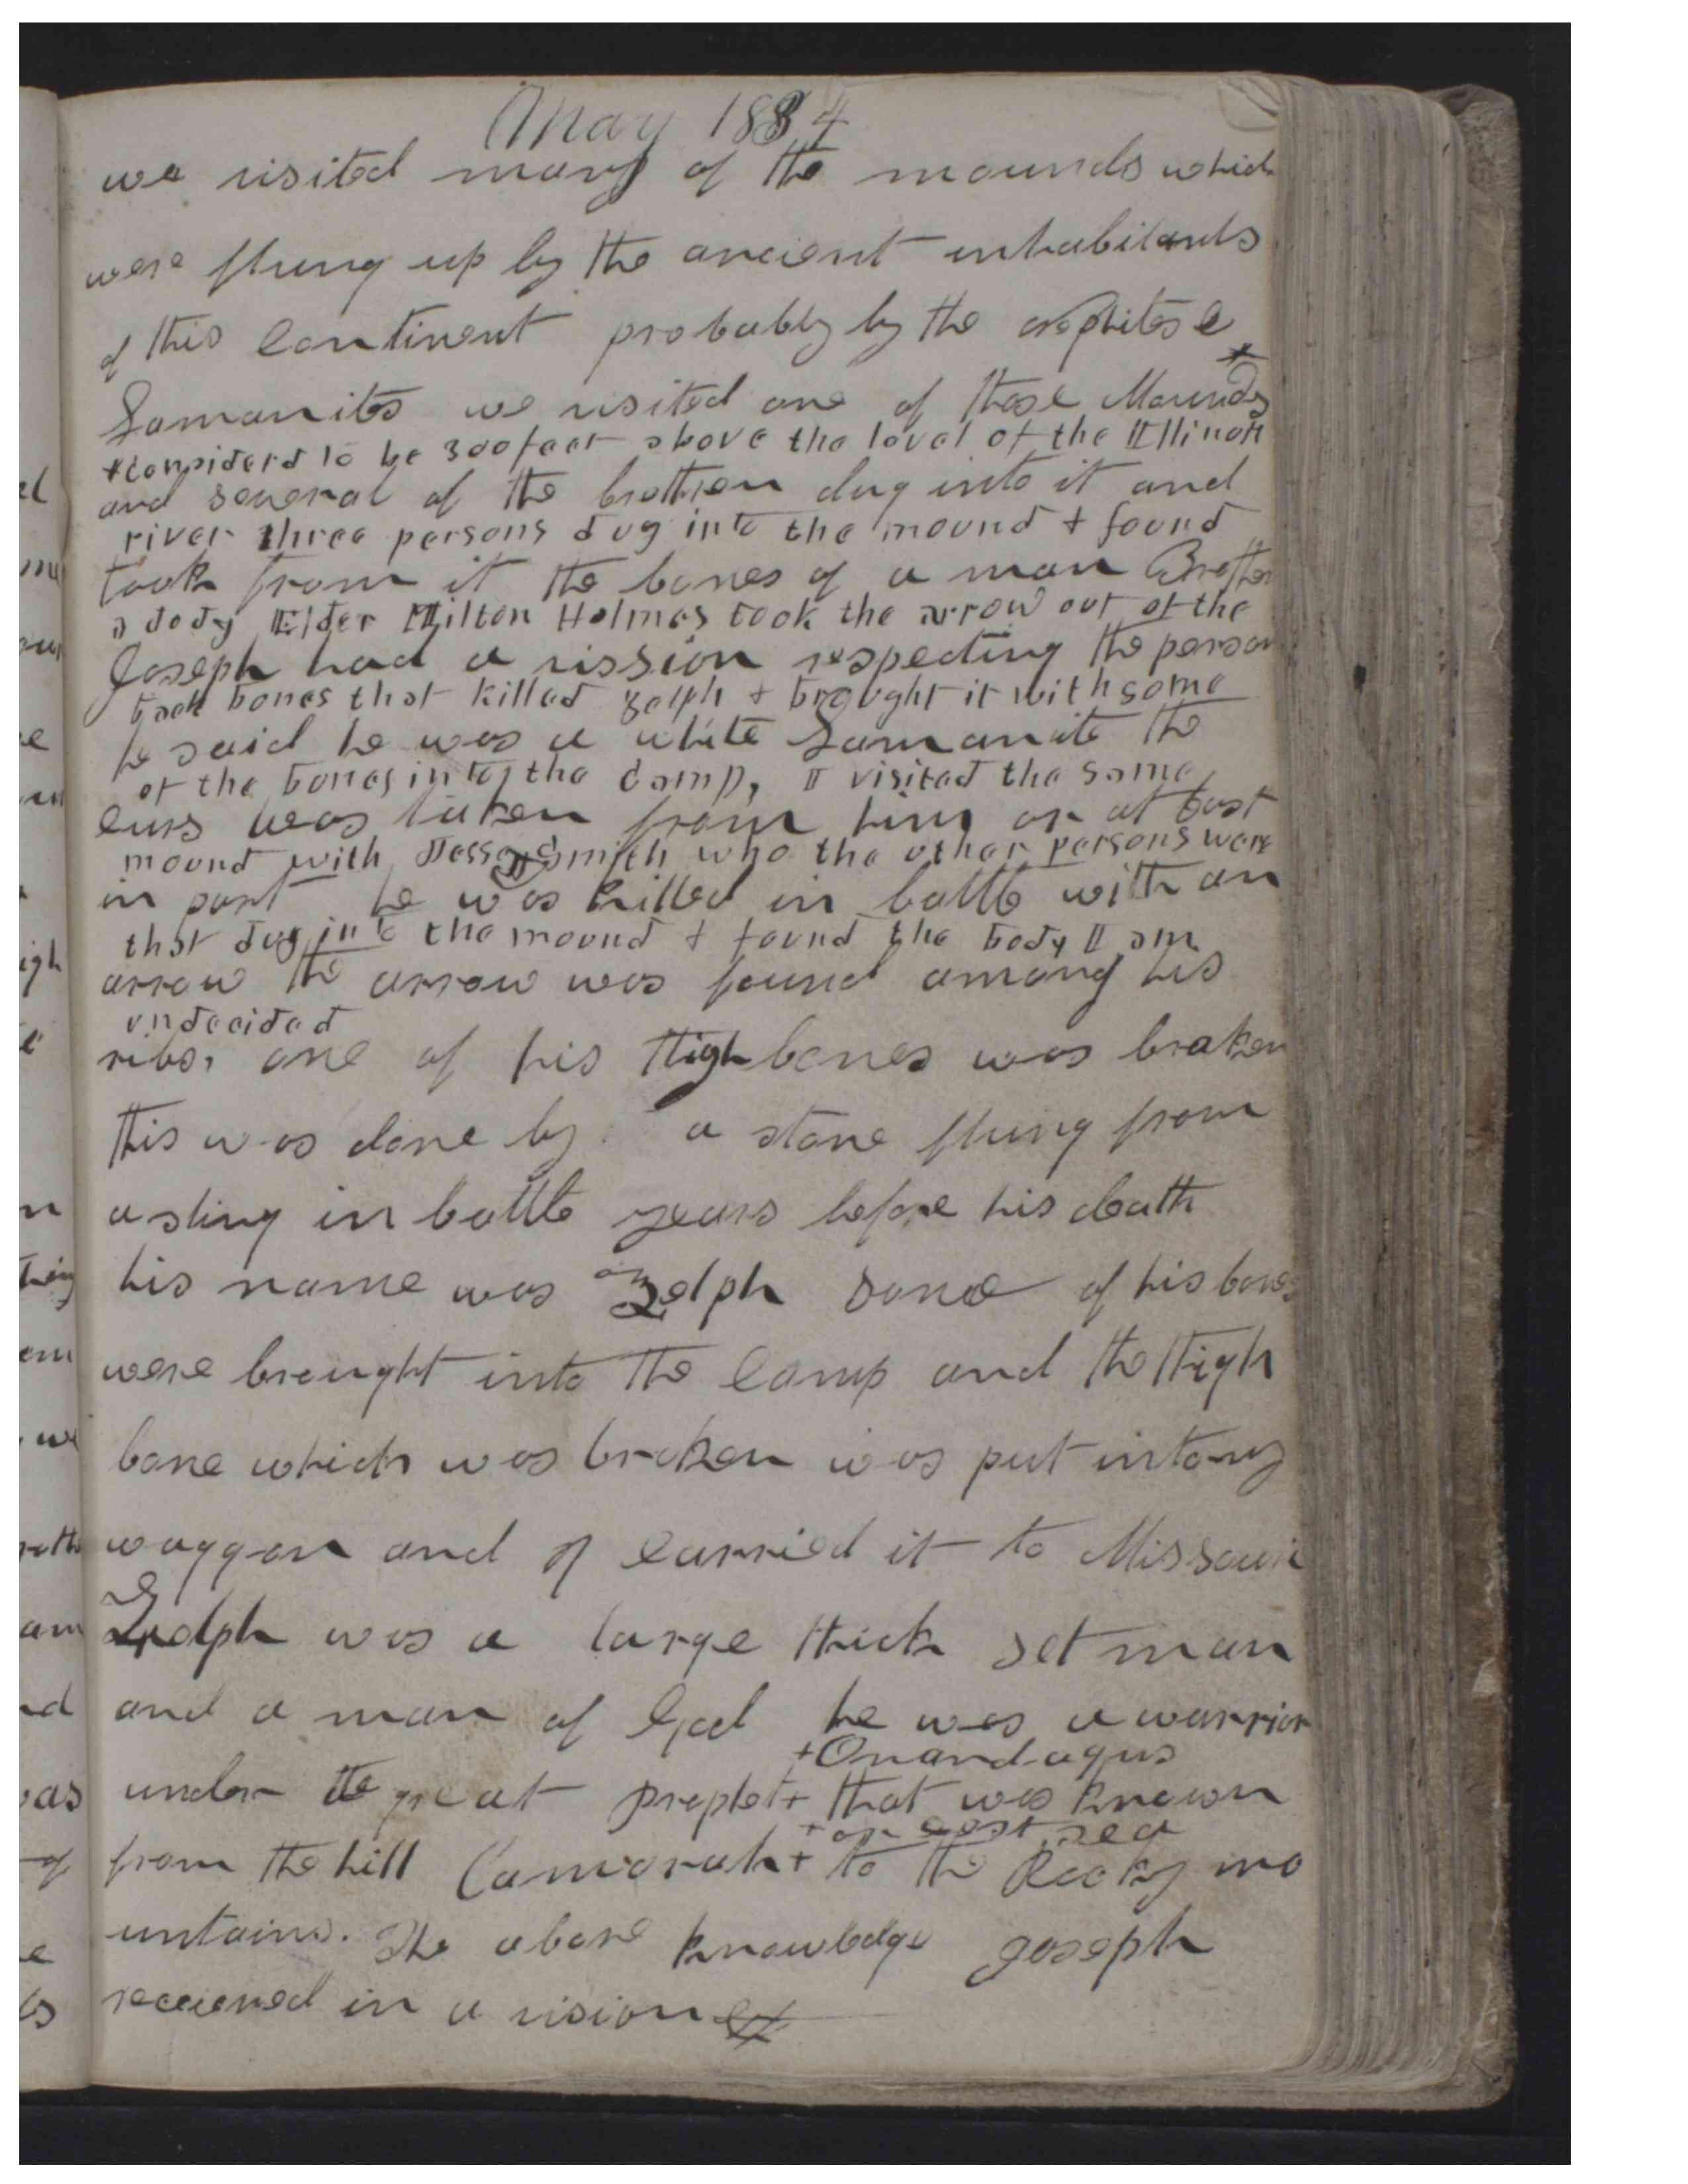 May 1834
we visited many of the mounds which
were flung up by the ancient inhabitants
of this continent probably by the Nephites &
Lamanites we visited one of those Mounds *
*considerd to be 300 feet above the level of the Illinois
and several of the brethren dug into it and
river three persons dug into the mound & found
took from it the bones of a man Brother
a body Elder Milton Holmes took the arrow out of the
Joseph had a vission respecting the person
back bones that killed Zelph & brought it with some
he said he was a white Lamanite the
of the bones in to the camp, I visited the same
curs was taken from him or at least
mound with Jesse J Smith who the other persons were
in part he was killed in battle with an
that dug in to the mound & found the body I am
arrow the arrow was found among his
undecided
ribs, one of his thigh bones was broken
this was done by a stone flung from
a sling in battle years before his death
his name was Zelph some of his bones
were brought into the camp and the thigh
bone which was broken was put into my
waggon and I carried it to Missouri
Zelph was a large thick set man
and a man of God he was a warrior
+Onandagus
under the great prophet + that was known
+ or east sea
from the hill Camorah + to the Rocky mo
untains. The above knowledge Joseph
received in a vision